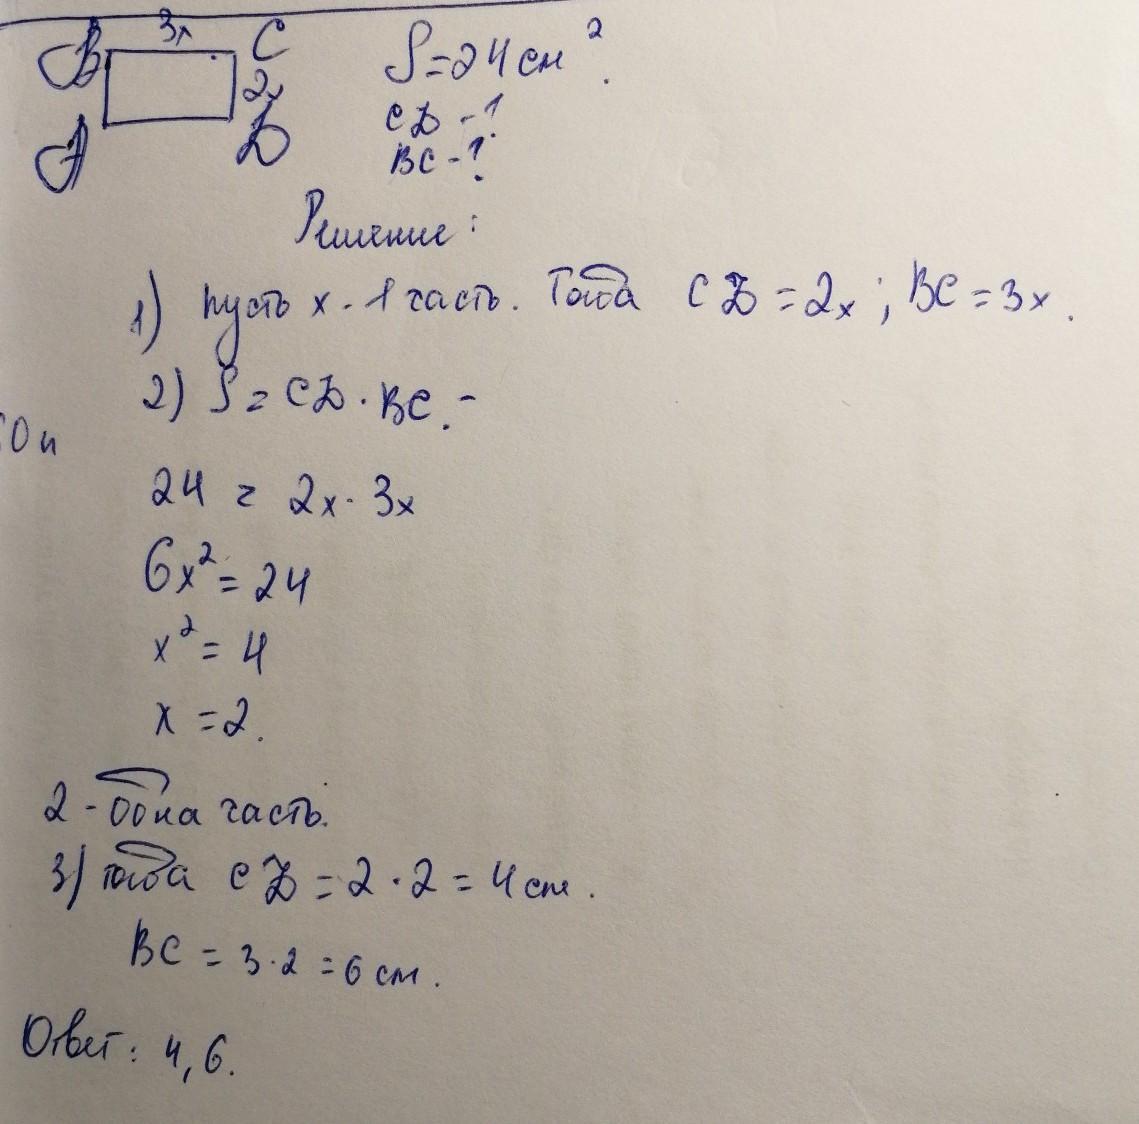 3x
B C S=24 см².
2x
A D CD -?
BC -?
Решение:
1) Пусть x - 1 часть. Тогда CD = 2x ; BC = 3x.
2) S = CD · BC. -
24 = 2x · 3x
6x² = 24
x² = 4
x = 2.
2 - одна часть.
3) тогда CD = 2 · 2 = 4 см.
BC = 3 · 2 = 6 см.
Ответ: 4, 6.